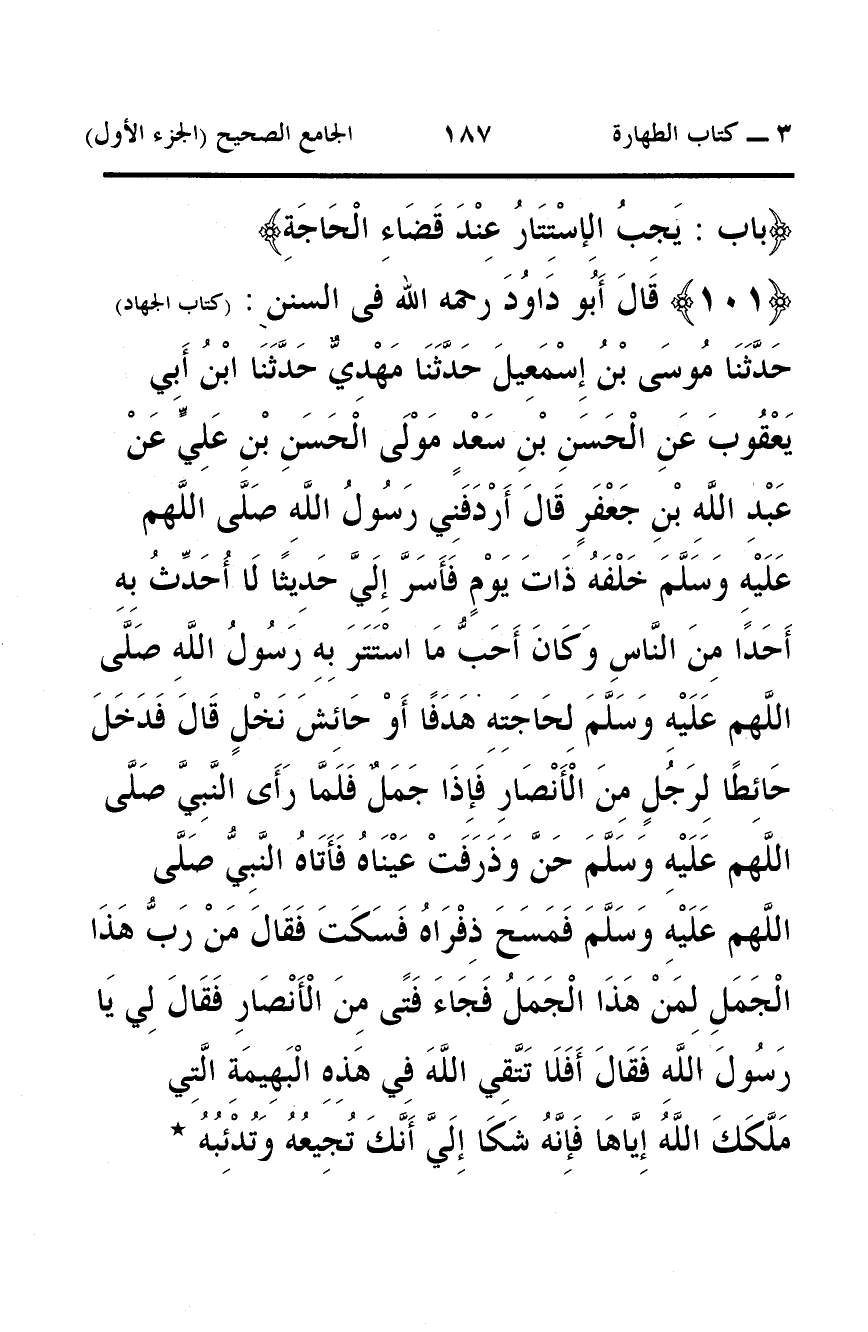 ٣ ــ كتاب الطهارة ١٨٧ الجامع الصحيح (الجزء الأول)
﴿باب : يَجِبُ الإِسْتِتَارُ عِنْدَ قَضَاءِ الْحَاجَةِ﴾
﴿١٠١﴾ قَالَ أَبُو دَاوُدَ رحمه الله فى السنن : (كتاب الجهاد)
حَدَّثَنَا مُوسَى بْنُ إِسْمَعِيلَ حَدَّثَنَا مَهْدِيٌّ حَدَّثَنَا ابْنُ أَبِي
يَعْقُوبَ عَنِ الْحَسَنِ بْنِ سَعْدٍ مَوْلَى الْحَسَنِ بْنِ عَلِيٍّ عَنْ
عَبْدِ اللَّهِ بْنِ جَعْفَرٍ قَالَ أَرْدَفَنِي رَسُولُ اللَّهِ صَلَّى اللَّهم
عَلَيْهِ وَسَلَّمَ خَلْفَهُ ذَاتَ يَوْمٍ فَأَسَرَّ إِلَيَّ حَدِيثًا لَا أُحَدِّثُ بِهِ
أَحَدًا مِنَ النَّاسِ وَكَانَ أَحَبُّ مَا اسْتَتَرَ بِهِ رَسُولُ اللَّهِ صَلَّى
اللَّهم عَلَيْهِ وَسَلَّمَ لِحَاجَتِهِ هَدَفًا أَوْ حَائِشَ نَخْلٍ قَالَ فَدَخَلَ
حَائِطًا لِرَجُلٍ مِنَ الْأَنْصَارِ فَإِذَا جَمَلٌ فَلَمَّا رَأَى النَّبِيَّ صَلَّى
اللَّهم عَلَيْهِ وَسَلَّمَ حَنَّ وَذَرَفَتْ عَيْنَاهُ فَأَتَاهُ النَّبِيُّ صَلَّى
اللَّهم عَلَيْهِ وَسَلَّمَ فَمَسَحَ ذِفْرَاهُ فَسَكَتَ فَقَالَ مَنْ رَبُّ هَذَا
الْجَمَلِ لِمَنْ هَذَا الْجَمَلُ فَجَاءَ فَتًى مِنَ الْأَنْصَارِ فَقَالَ لِي يَا
رَسُولَ اللَّهِ فَقَالَ أَفَلَا تَتَّقِي اللَّهَ فِي هَذِهِ الْبَهِيمَةِ الَّتِي
مَلَّكَكَ اللَّهُ إِيَّاهَا فَإِنَّهُ شَكَا إِلَيَّ أَنَّكَ تُجِيعُهُ وَتُدْئِبُهُ *